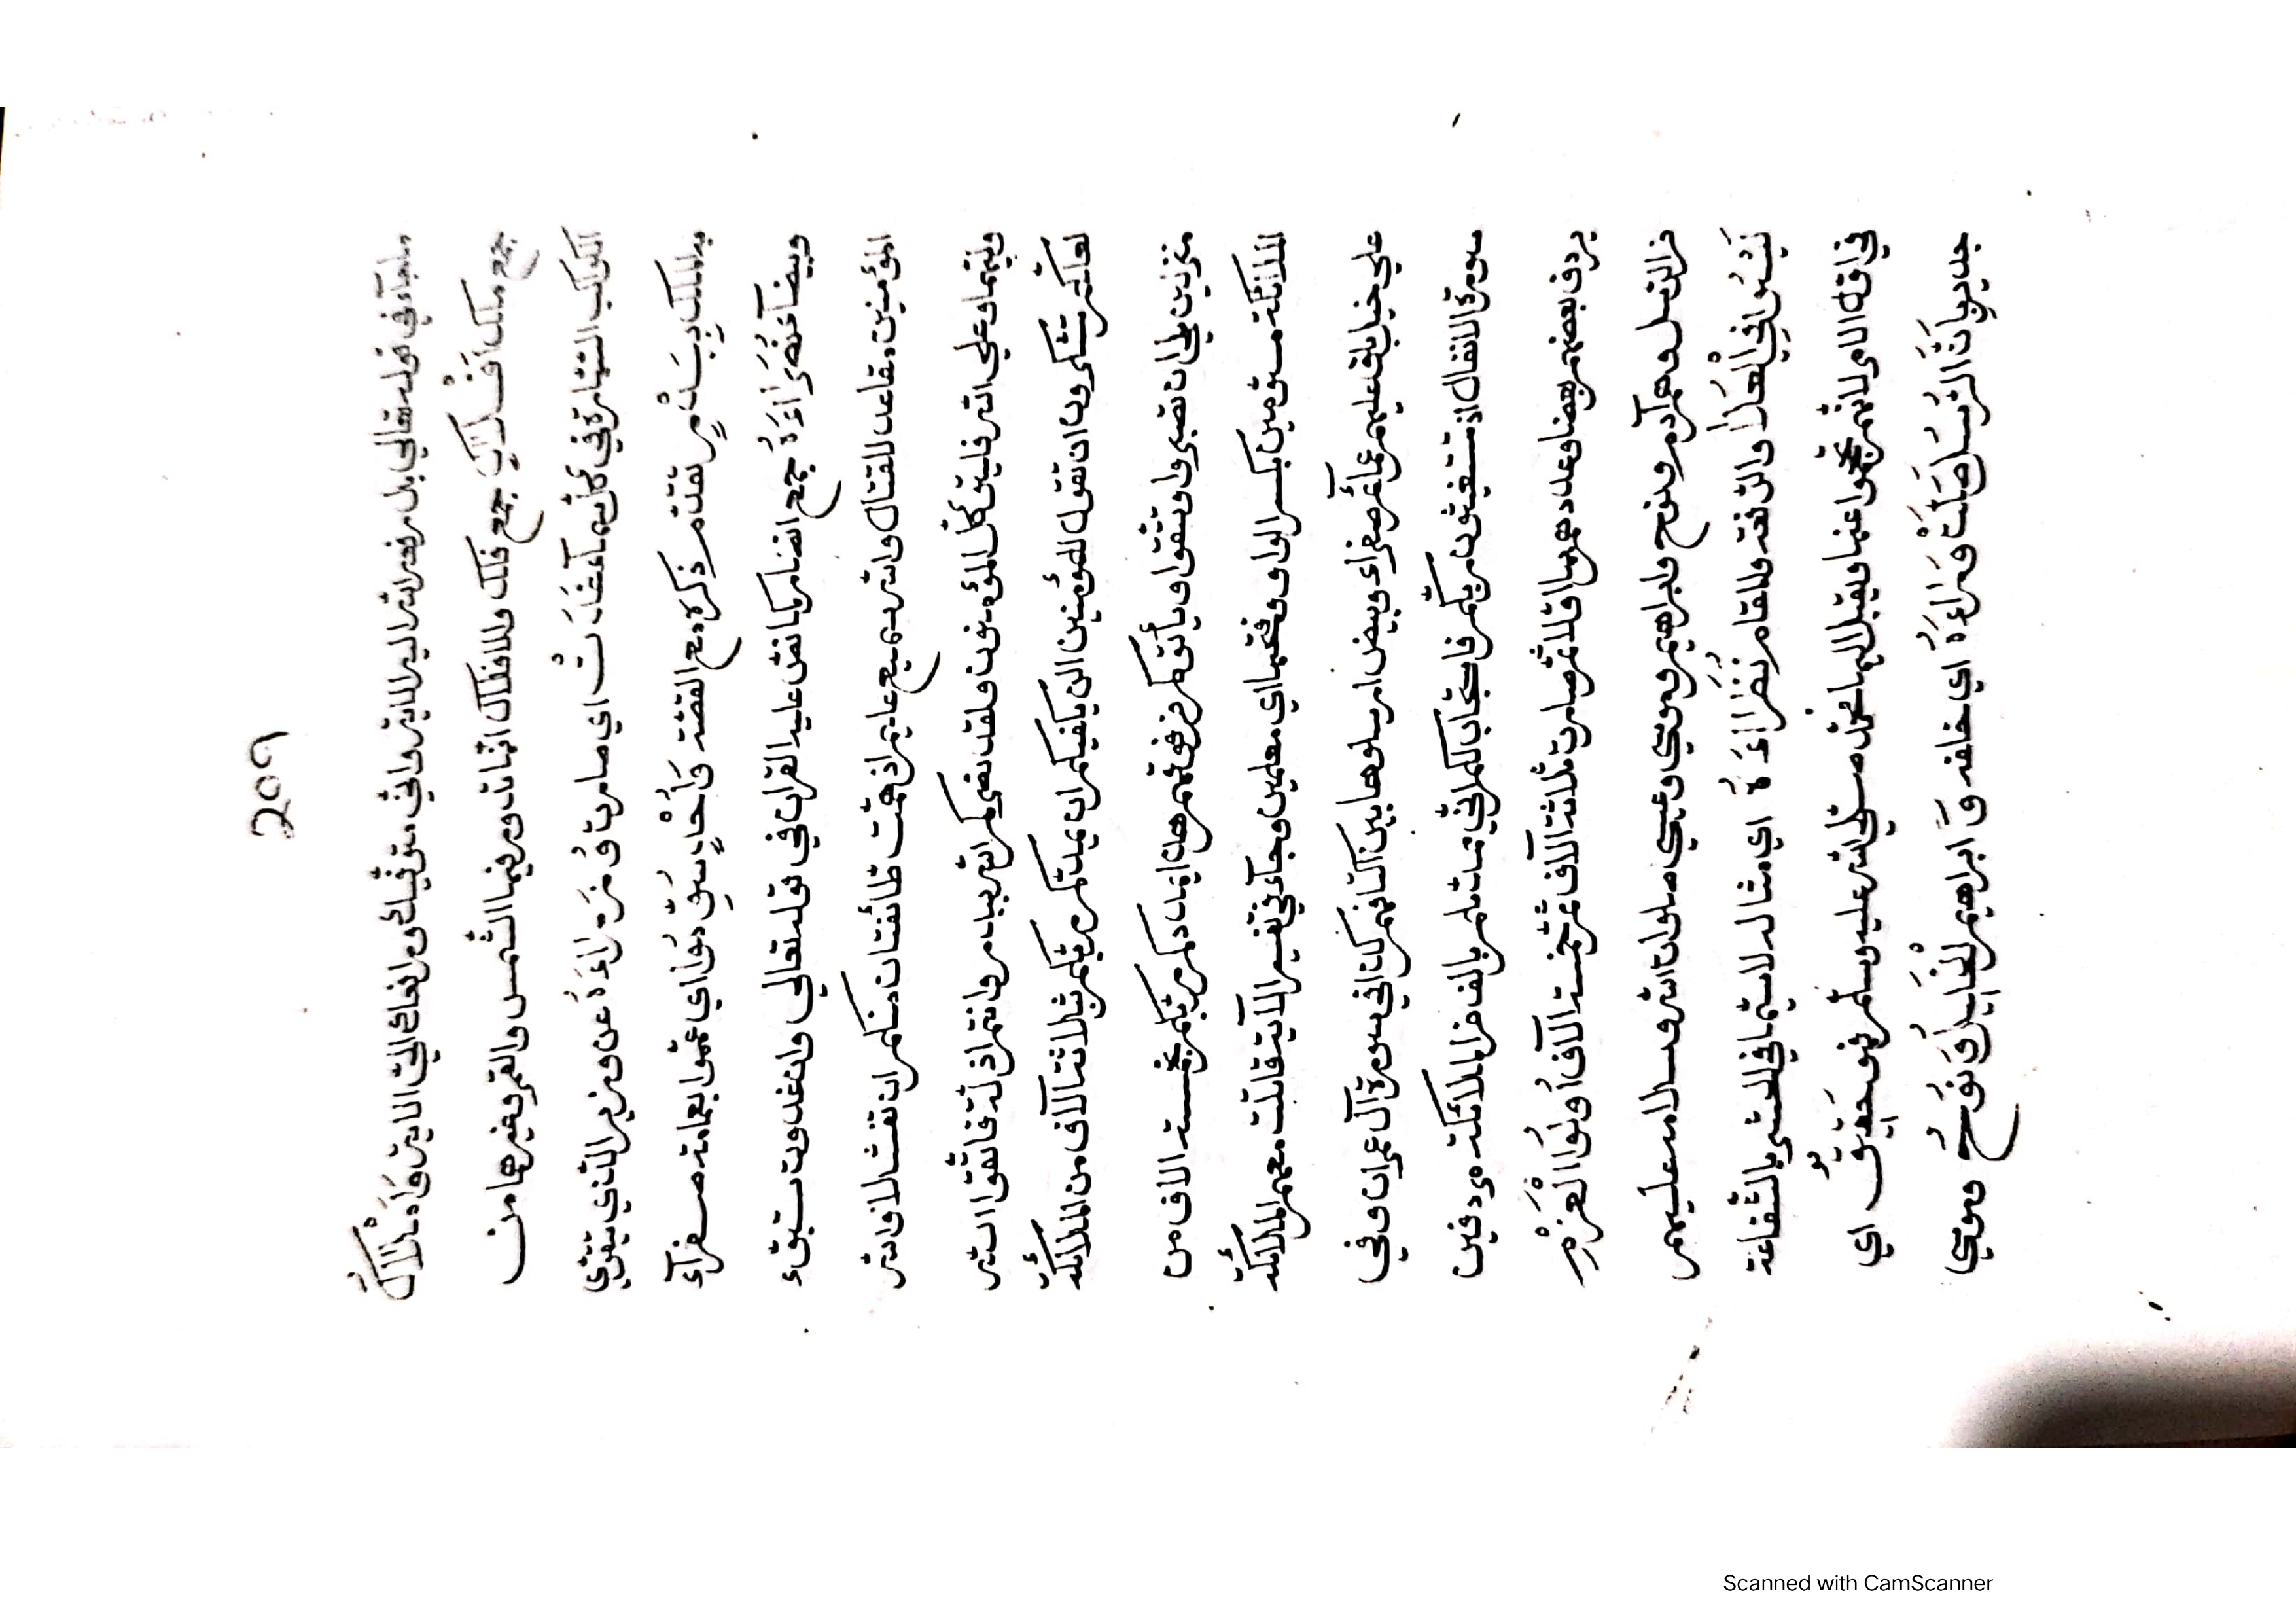 209
ماجآء في قوله تعالي بل رفعه الله اليه الاية واني متوفيك ورافعك اليّ الاية وَاَمْلَاكُ
جمع ملك اَفْلَاكٍ جمع فلك والافلاك اثبات ورفيها الشّمس والقمر وغيرها من
الكواكب السّيّارة في كل يوم آعضَاءَتْ اي صارت وُزَرَاءَهُ عن وزير الّذي يتقوي
به الملك بِبَدْرٍ تقدّم ذكره مع القصّة وَاُحْدٍ سُوِّمُوا اي عمّوا بعمامة صفرآء
وبيضآءنُصَرَاءَهُ جمع انصار كما نصّ عليه القران في قوله تعالي واذ غدوت تبوّء
المؤمنين مقاعد للقتال والله سميع عليم اذ همّت طائفتان منكم ان تفشلا والله
وليّهما وعلي الله فليتوكّل المؤمنون ولقد نصركم الله ببدر وانتم اذلّة فاتّقوا الله
لعلّكم تشكرون اذ تقول للمؤمنين الن يكفيكم ان يمدّكم ربّكم بثلاثة آلاف من الملائكة
منزلين بلي ان تصبروا وتتّقوا ويأتوكم من فورهم هذا يمددكم ربّكم بخمسة الاف من
الملائكة مسوّمين بكسر الواو وفتحها اي معلمين وجآء في تفسير الآية قاتلت معهم الملائكة
علي خيل بلق عليهم عمآئم صفراء وبيض ارسلوها بين اكتافهم كذا في سورة آل عمران وفي
سورة الانفال اذ تستغيثون ربّكم فاستجاب لكم انّي ممدّكم بالف من الملائكة مردفين
يردف بعضهم بعضا وعدهم بها اوّلا ثمّ صارت ثلاثة آلاف ثمّ خمسة الآف اُولُوا الْعَزْمِ
من الرّسل وهم آدم ونوح وابراهيم وموسي وعيسي صلوات الله وسلامه عليهم
لَيْسُوا فِي الْعُلَا والرّفعة والمقام نُظَرَاءَهُ اي مثاله لاسيّما في الحشر بالشّفاعة
في اوّله الامر لانّهم تخلّوا عنها ويقبل اليها محمّد صلّي الله عليه وسلّم فهو حَقِيقٌ اي
جدير بِاَنَّ الرُّسْلَ صَلَّتْ وَرَاءَهُ اي خلفه وَّابراهيم الْخَلِيلُ وَنُوحُ موسي
Scanned with CamScanner